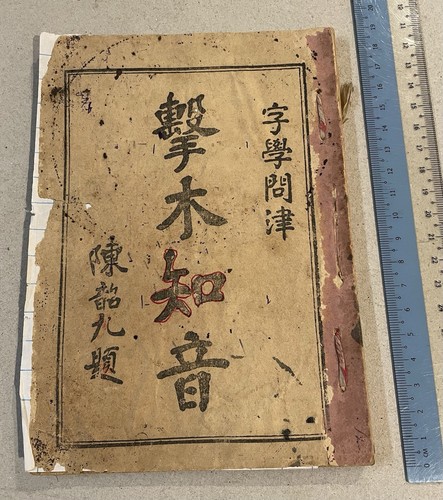 字學問津
擊木知音
陳韶九題